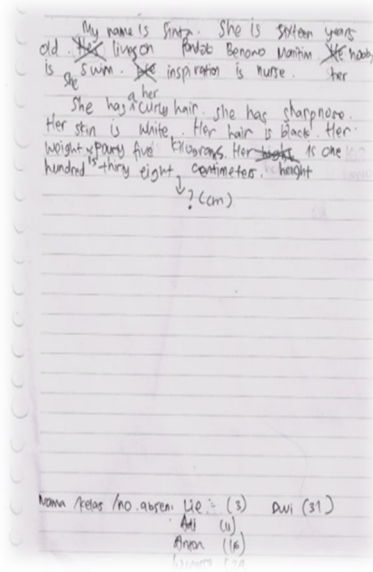 My name is Sinta. She is sixteen years
old. Her lives on Pondok Benowo Maritim. He hobby
is swim. He inspiration is nurse. her
she
a her
She has curly hair. She has sharpnose.
Her skin is white. Her hair is black. Her
weight fourty five kilograms. Her hight is one
hundred is thirty eight centimeters. height
? (cm)
Nama /kelas /no. absen: Lie = (3) Dwi (31)
Adi (11)
(16)